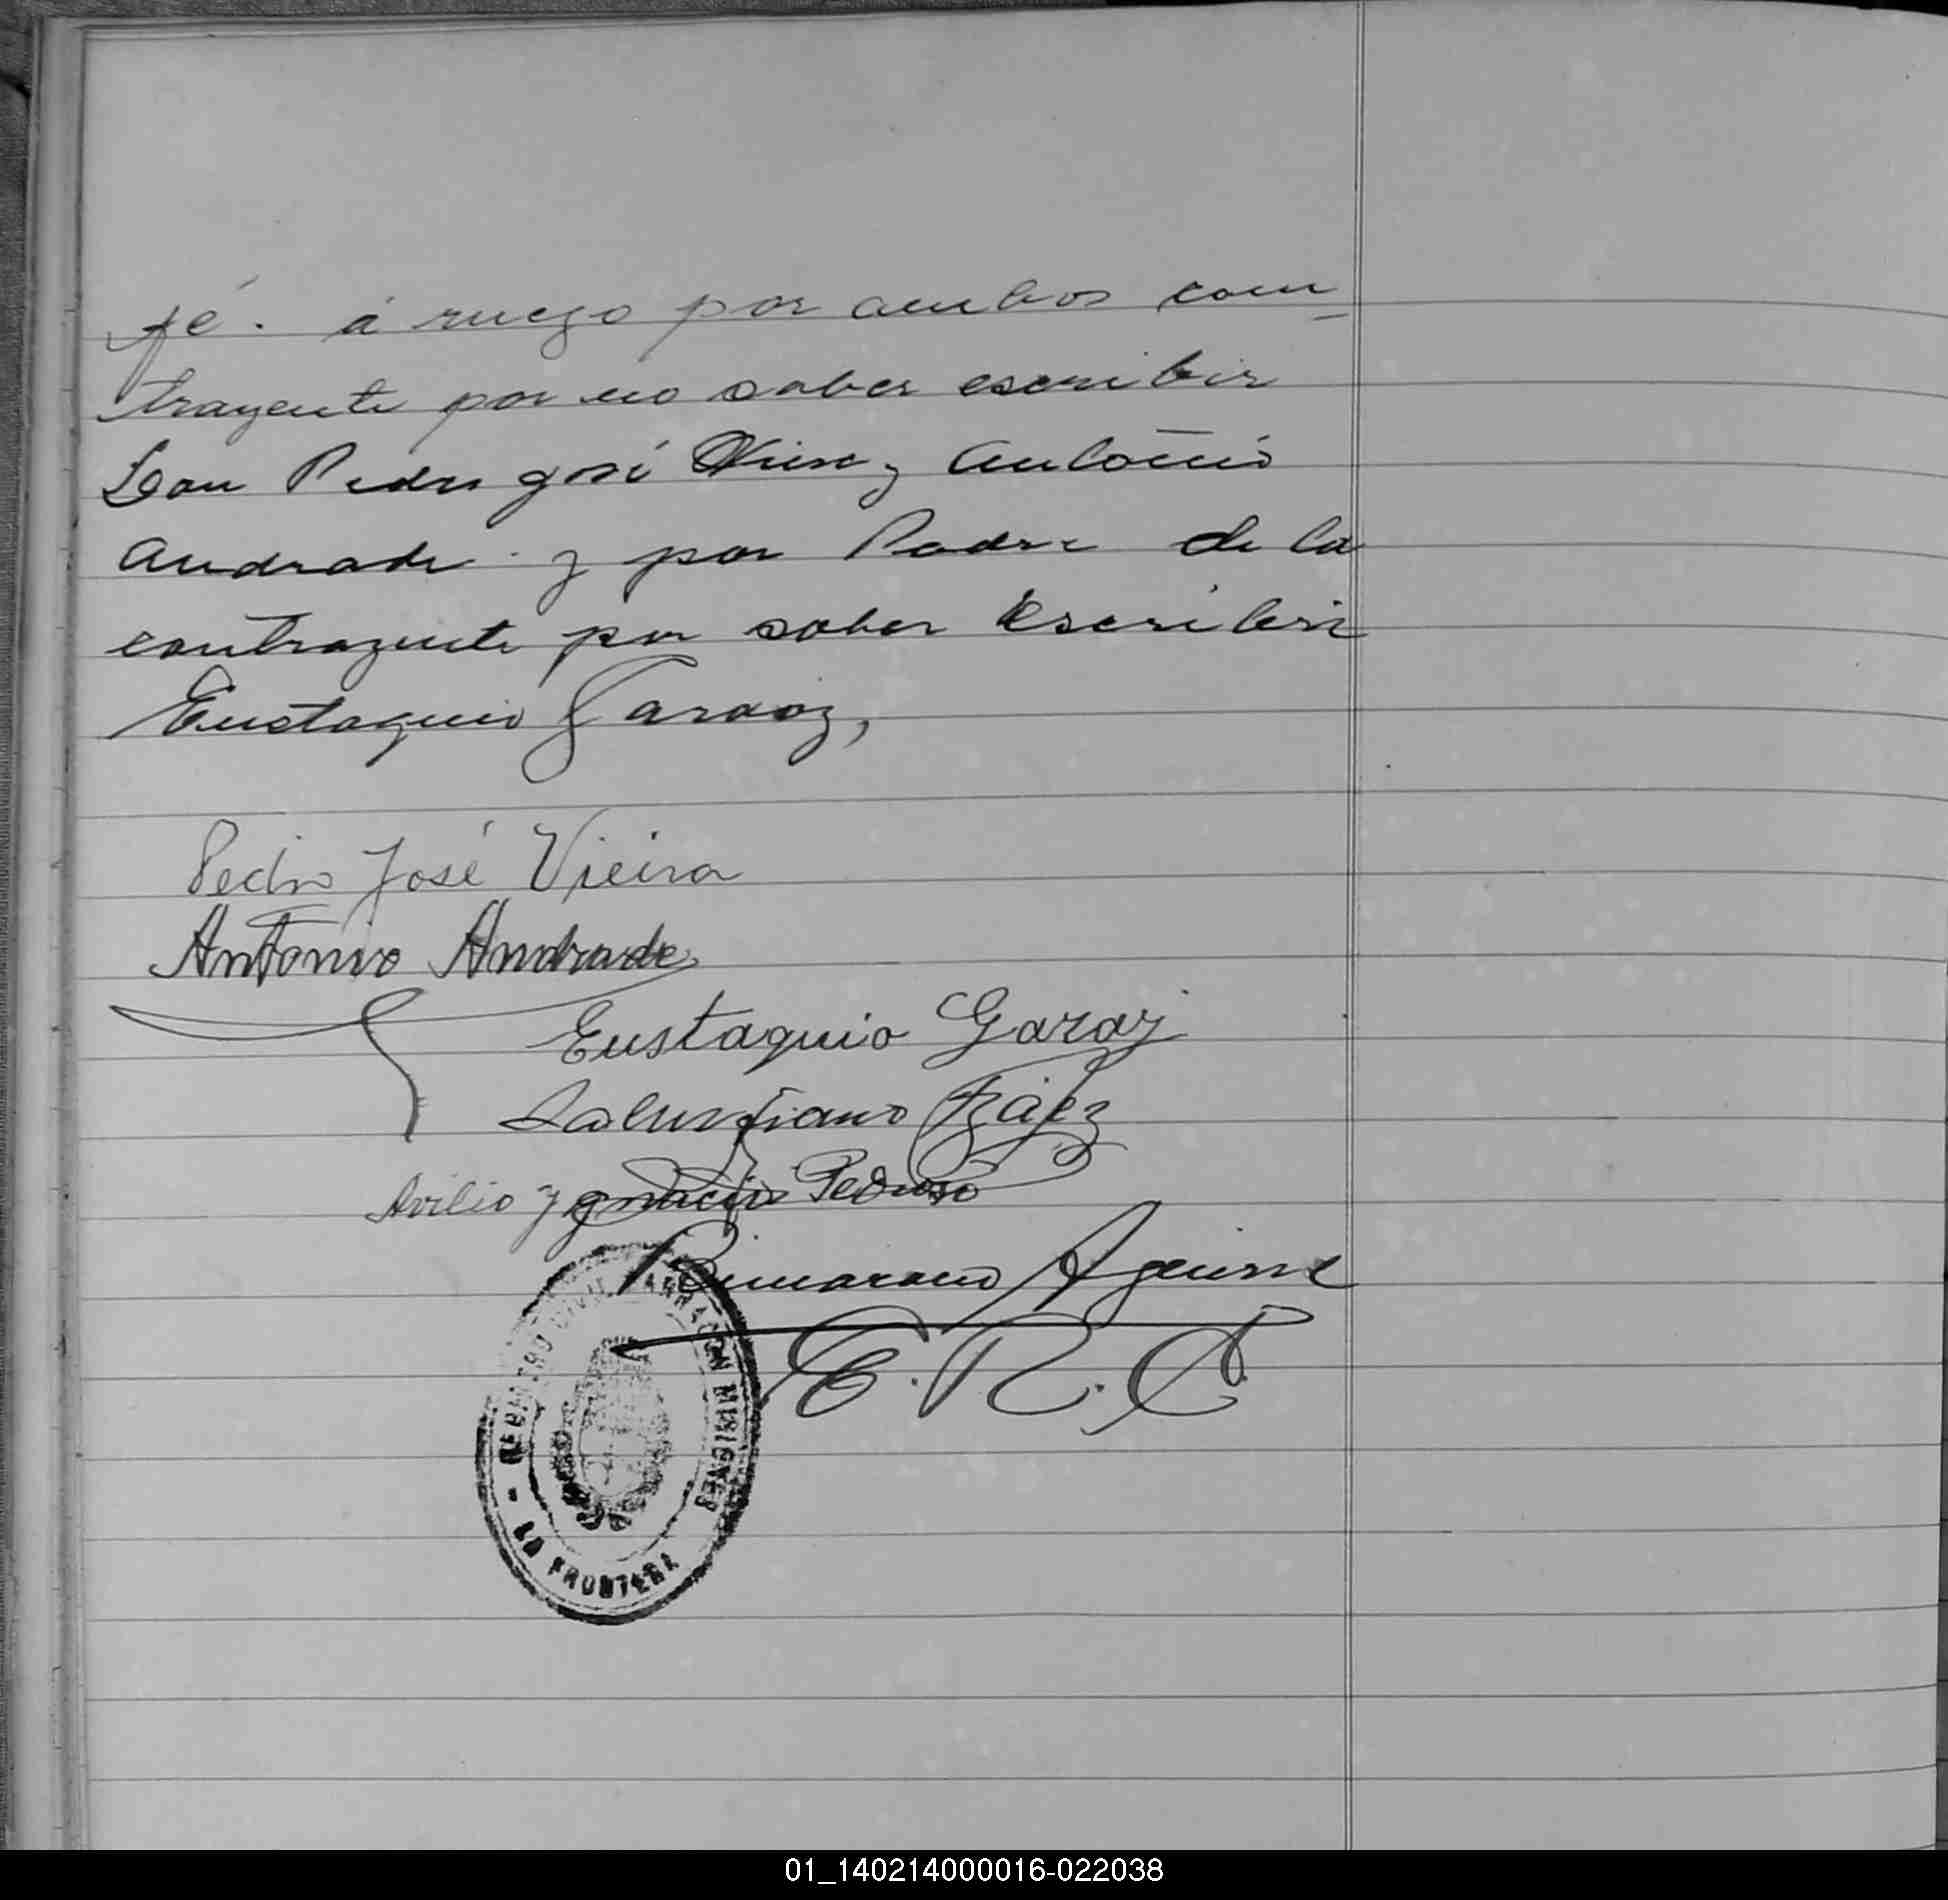 fé. á ruego por ambos con-
trayente por no saber escribir
Don Pedro José Viera y Antonio
Andrade y por Padre de la
contrayente por saber escribir
Eustaquio Garaoz,
Pedro José Vieira
Antonio Andrade
Eustaquio Garay
Salustiano Báez
Avilio Ygnacio Pedroso
Aguirre
E. R. C.
REGISTRO CIVIL BARRACON MISIONES
- LA FRONTERA
01_140214000016-022038